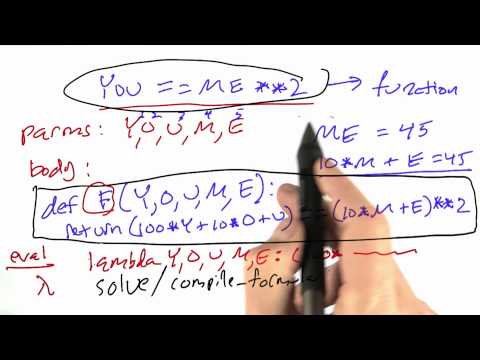 YOU == ME **2 → function
params: Y, O, U, M, E
1 2 3 4 5
ME = 45
body: 10*M + E = 45
def F (Y, O, U, M, E):
return (100*Y+10*O+U) == (10*M+E)**2
eval lambda Y, O, U, M, E: (100*
λ solve/compile_formula